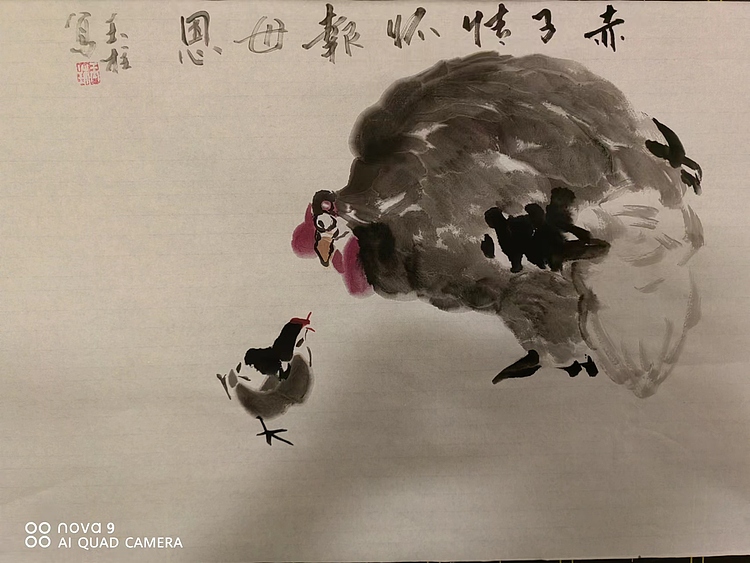 赤子情怀報母恩
玉柱
寫
nova 9
AI QUAD CAMERA